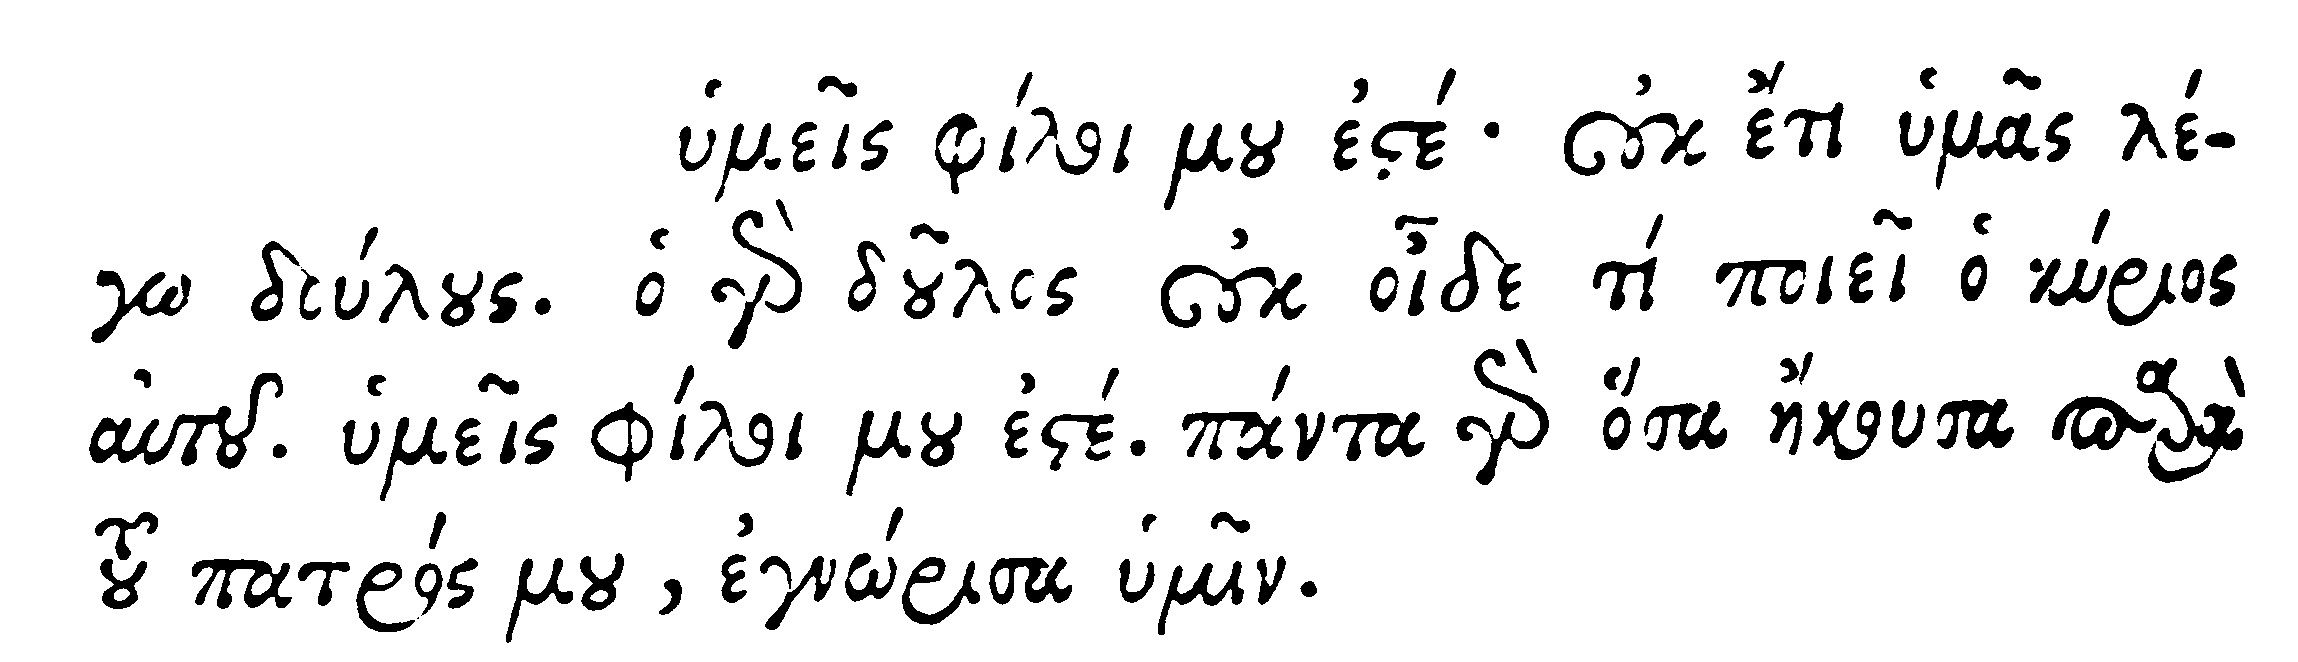 ὑμεῖς φίλοι μου ἐστέ· οὐκ ἔτι ὑμᾶς λέ-
γω δούλους. ὁ γὰρ δοῦλος οὐκ οἶδε τί ποιεῖ ὁ κύριος
αὐτοῦ. ὑμεῖς φίλοι μου ἐστέ. πάντα γὰρ ὅσα ἤκουσα παρὰ
τοῦ πατρός μου, ἐγνώρισα ὑμῖν.